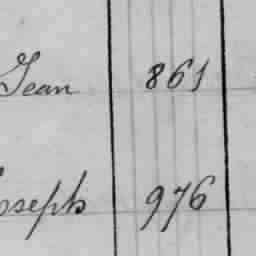 Jean 861
Joseph 976